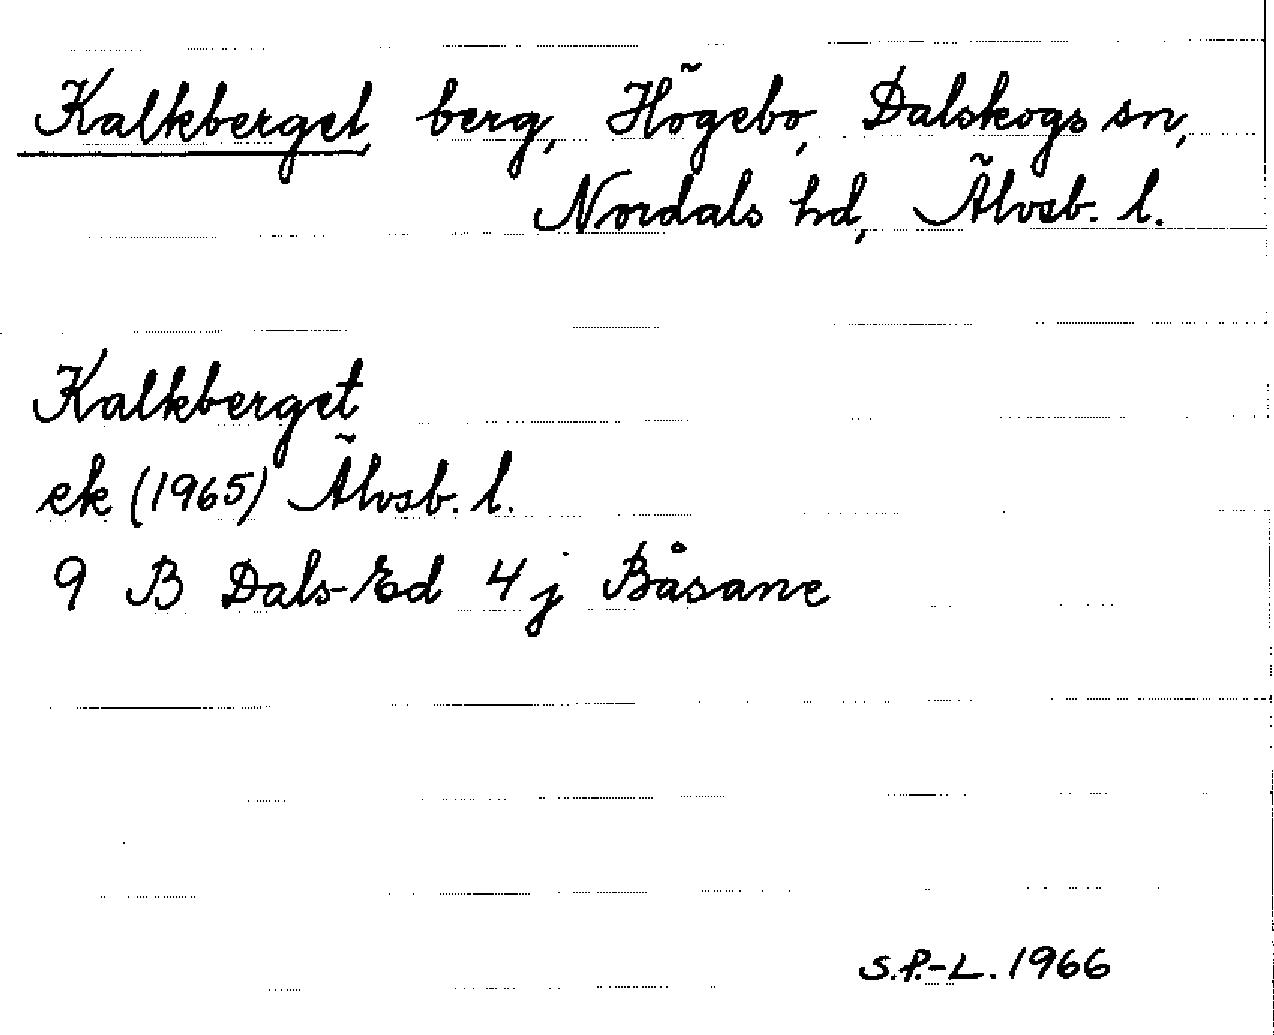 Kalkberget, berg, Högebo, Dalskogs sn,
Nordals hd, Älvsb. l.
Kalkberget
ek (1965) Älvsb. l.
9 B Dals-Ed 4 j Båsane
S.P.-L. 1966